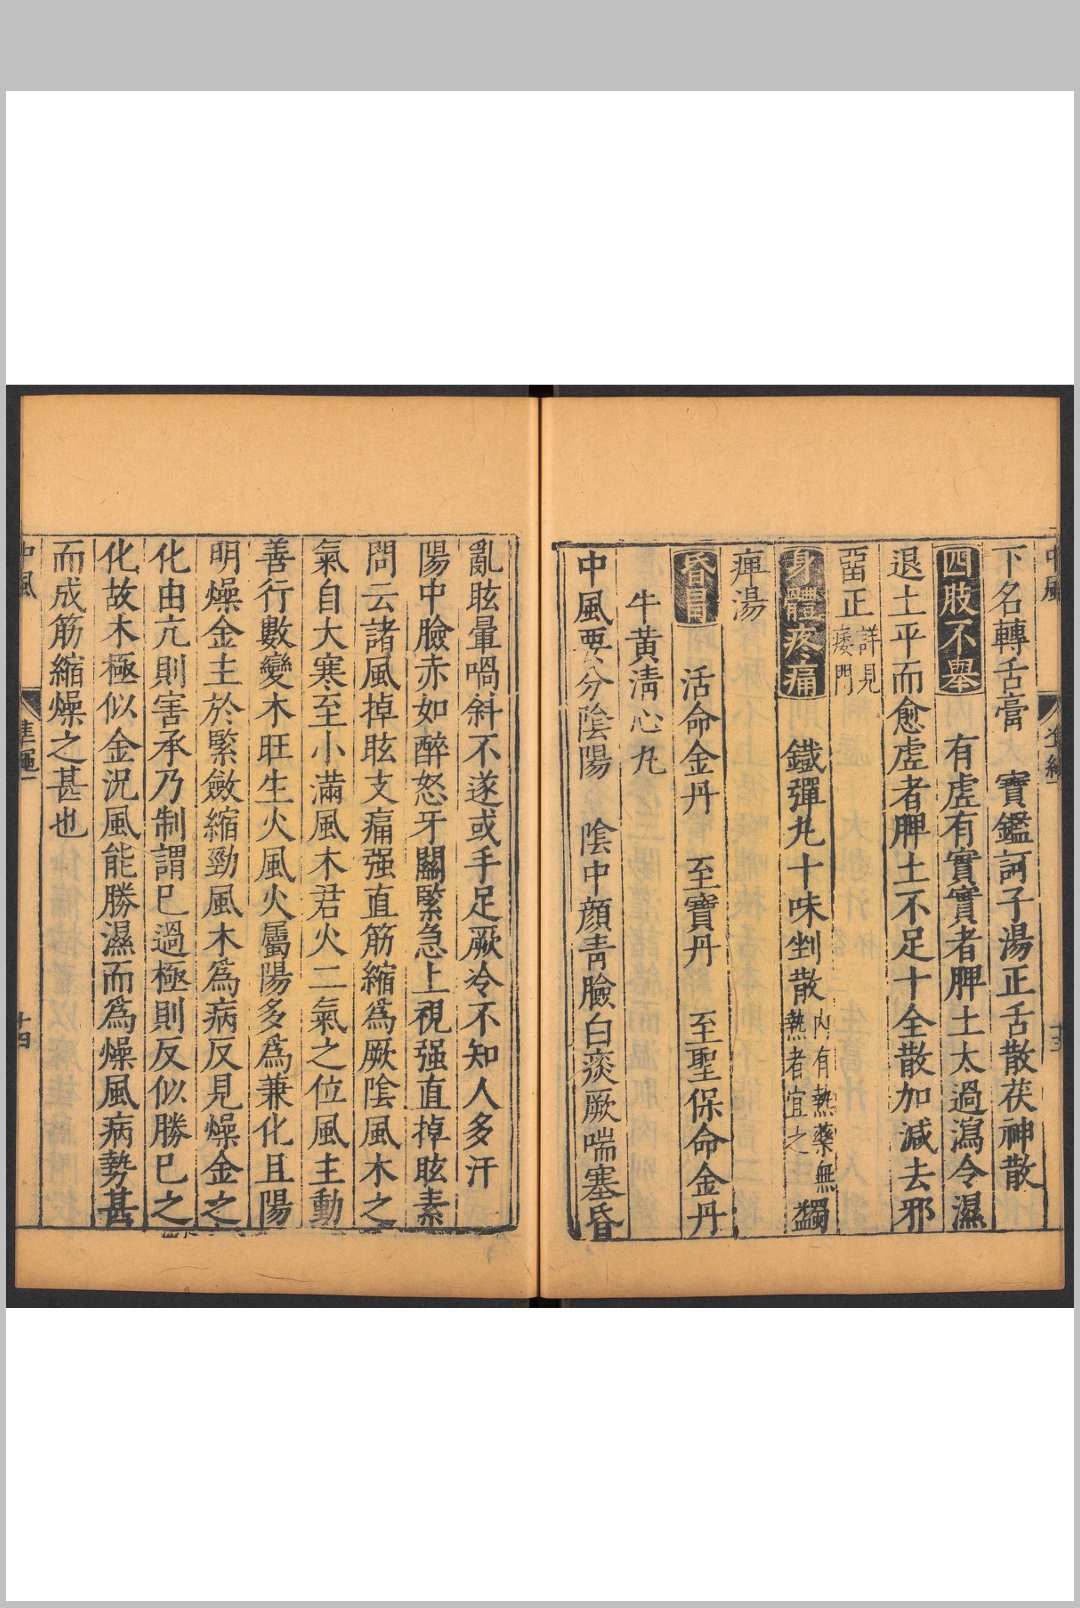 下名轉舌膏 寶鑑訶子湯正舌散茯神散
四肢不舉 有虛有實實者脾土太過瀉令濕
退土平而愈虛者脾土不足十全散加減去邪
畱正詳見痿門
身體疼痛 鐵彈丸十味剉散內有熱藥無熱者宜之 蠲
痺湯
昏冒 活命金丹 至寶丹 至聖保命金丹
牛黃清心丸
中風要分陰陽 陰中顔青臉白痰厥喘塞昏
亂眩暈喎斜不遂或手足厥冷不知人多汗
陽中臉赤如醉怒牙關緊急上視强直掉眩素
問云諸風掉眩支痛强直筋縮爲厥陰風木之
氣自大寒至小滿風木君火二氣之位風主動
善行數變木旺生火風火屬陽多爲兼化且陽
明燥金主於緊斂縮勁風木爲病反見燥金之
化由亢則害承乃制謂已過極則反似勝已之
化故木極似金況風能勝濕而爲燥風病勢甚
而成筋縮燥之甚也
中風
十四